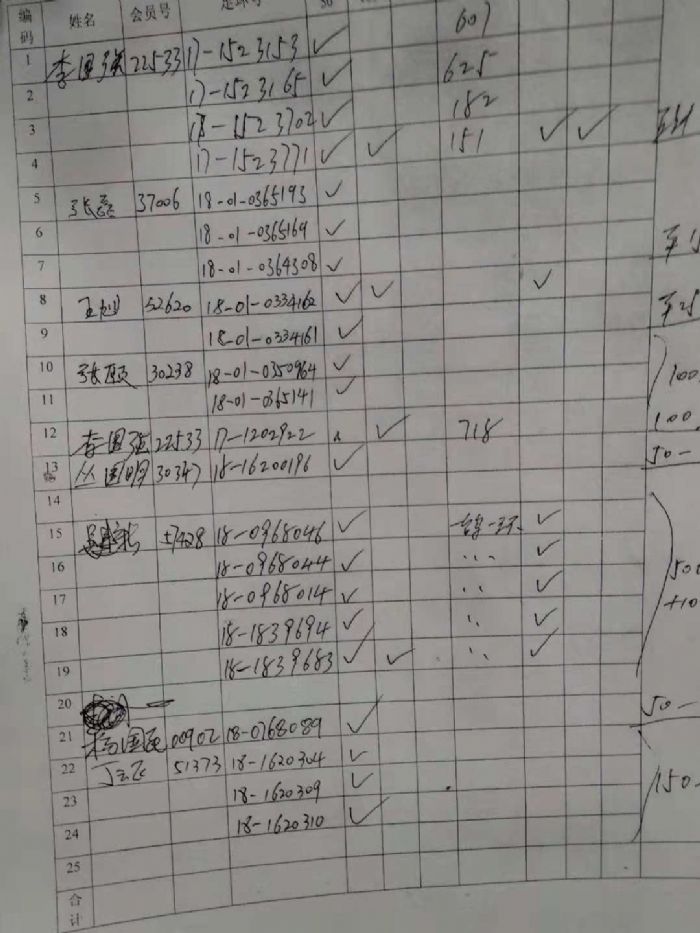 编码 姓名 会员号 足环号 50
1 李国强 22533 17-1523153 ✓ 607
2 17-1523165 ✓ 625
3 18-1523702 ✓ 182
4 17-1523771 ✓ ✓ 151 ✓ ✓
5 37006 18-01-0365193 ✓
6 18-01-0365169 ✓
7 18-01-0364308 ✓
8 52620 18-01-0334162 ✓ ✓ ✓
9 18-01-0334161 ✓
10 30238 18-01-0350964 ✓
11 18-01-0365141 ✓ 100
12 李国强 22533 17-1202922 ✓ 718 100
13 丛国明 30347 18-16200196 ✓ 50-
14
15 18-0968046 ✓ ✓
16 18-0968044 ✓ ✓
17 18-0968014 ✓ ✓ 500
18 18-1839694 ✓ ✓ +10
19 18-1839683 ✓ ✓ ✓
20 50-
21 00902 18-0768089 ✓
22 51373 18-1620304 ✓
23 18-1620309 ✓ 150-
24 18-1620310 ✓
25
合计